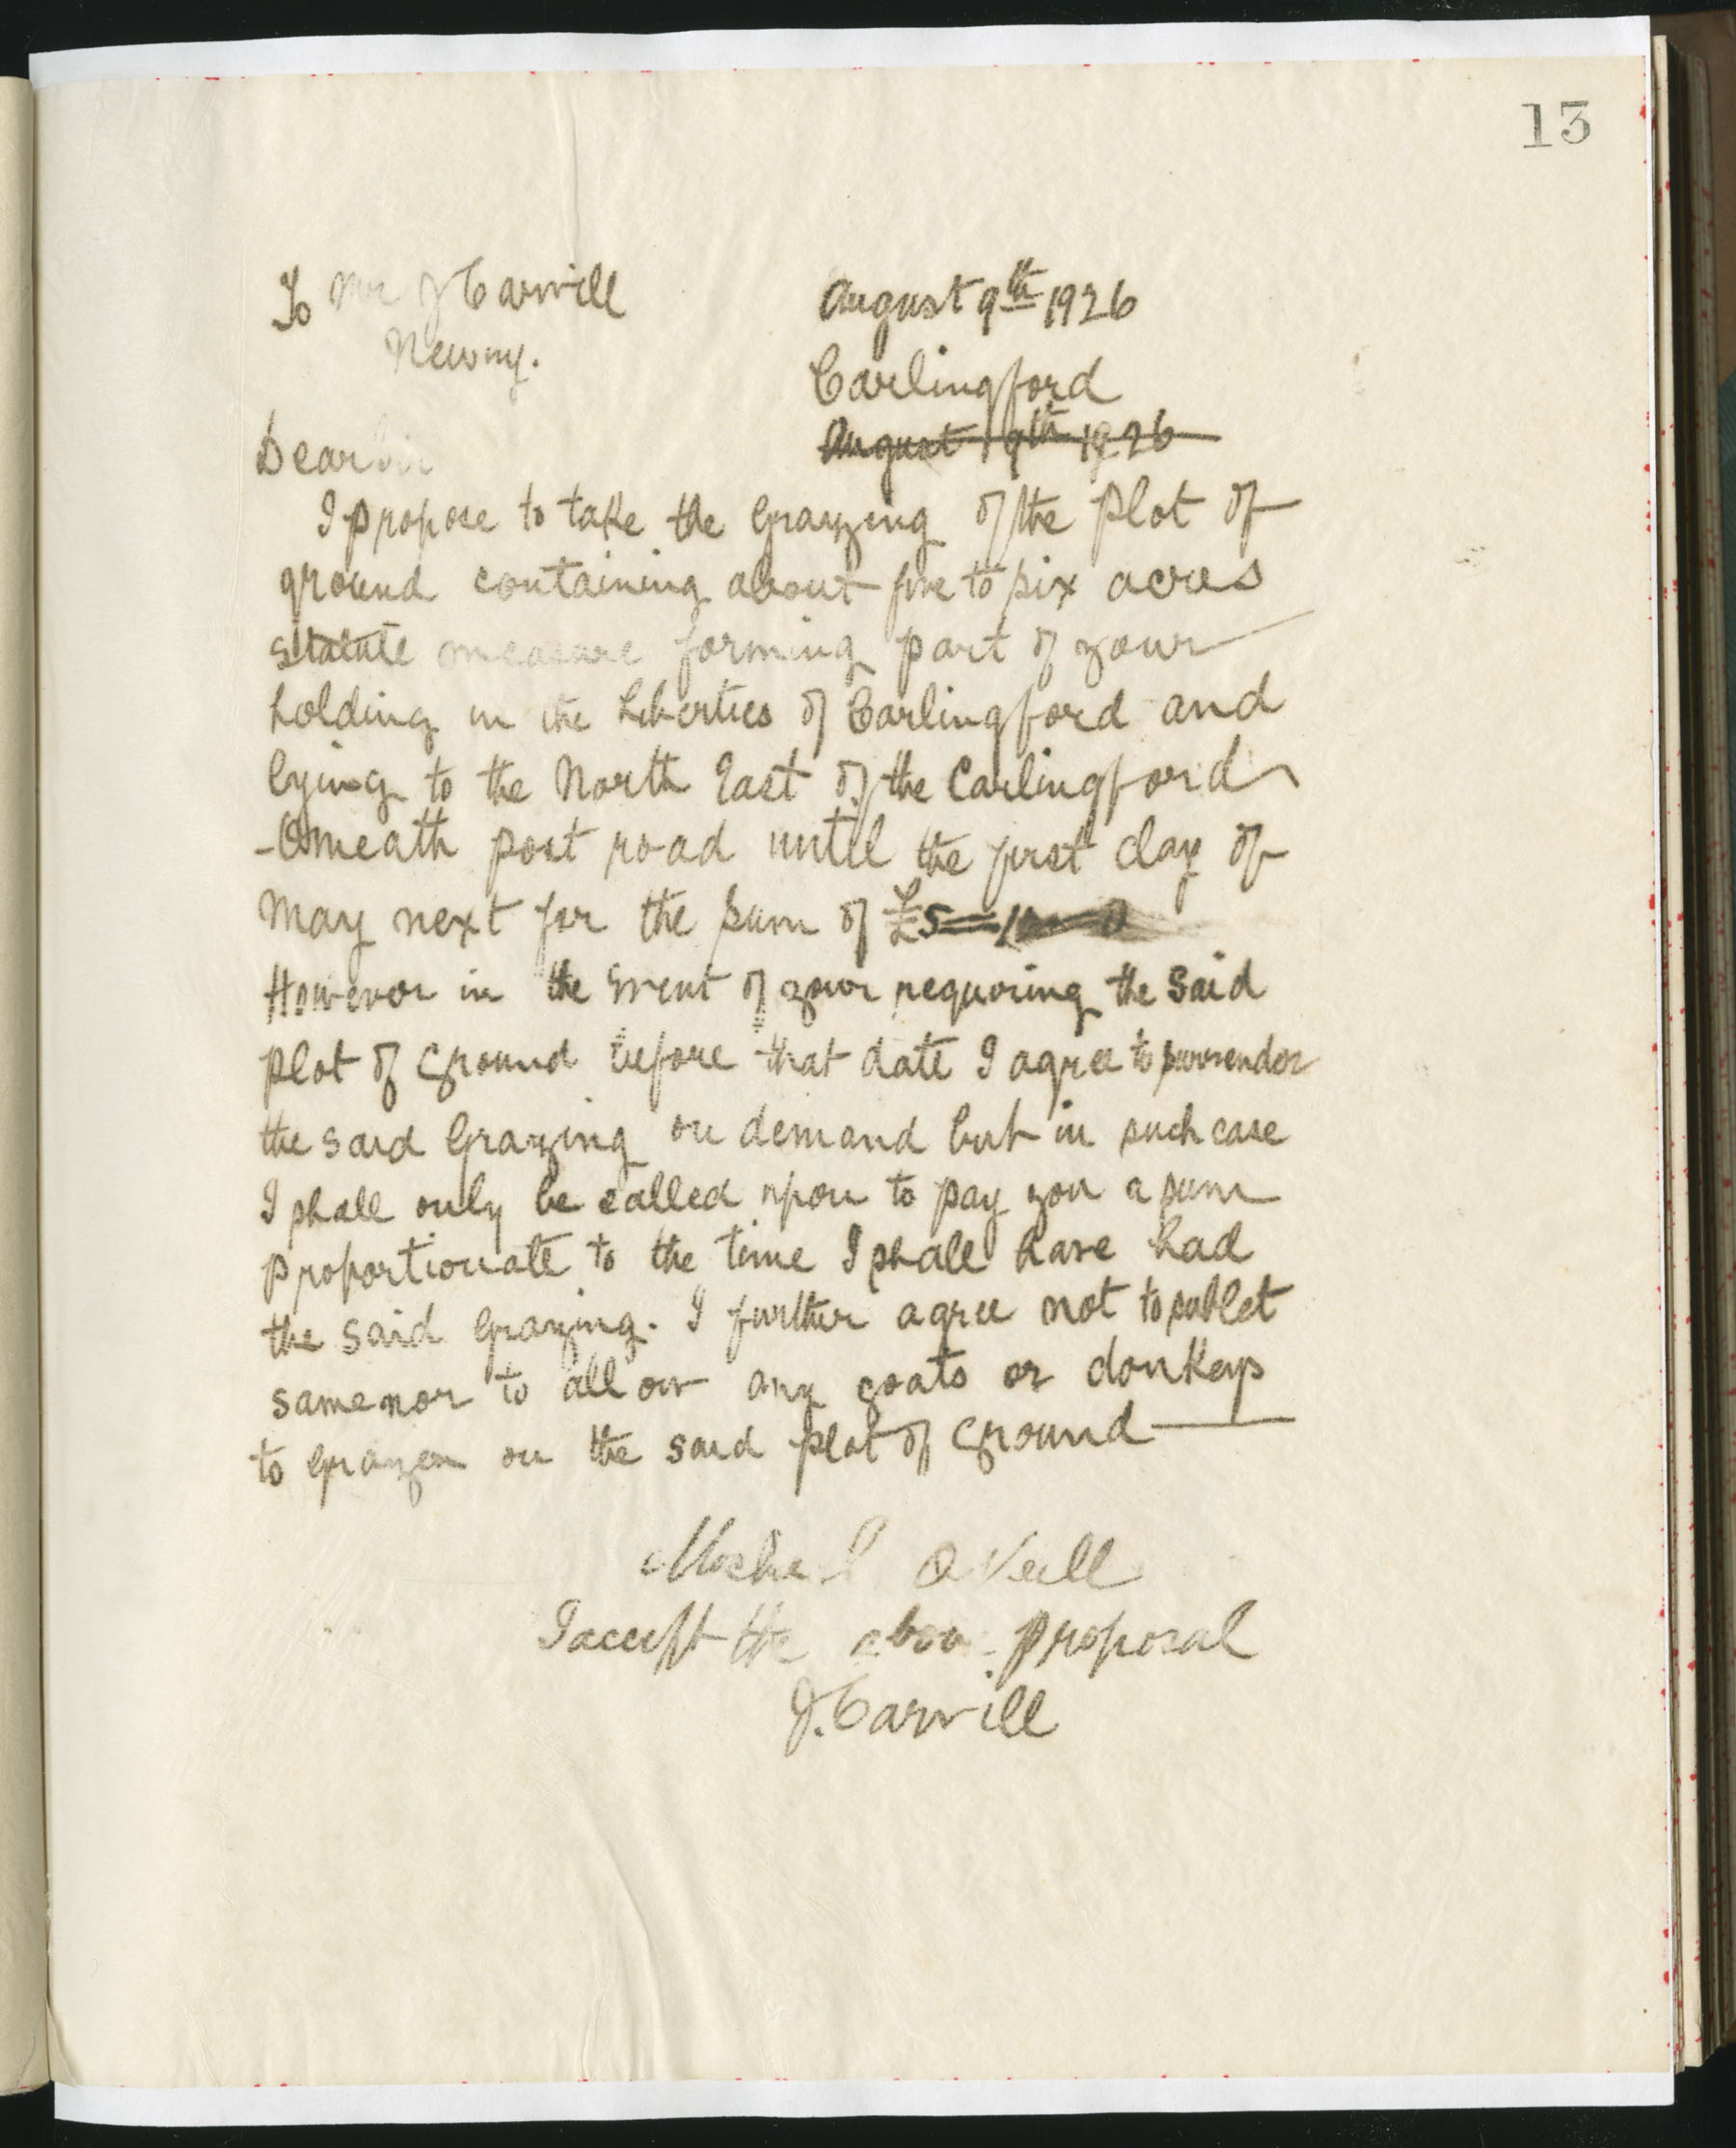 13
To Mr J Carvill
Newry.
August 9th 1926
Carlingford
August 9th 1926
Dear Sir
I propose to take the Grazing of the plot of
ground containing about five to six acres
statute measure forming part of your
holding in the Liberties of Carlingford and
lying to the North East of the Carlingford
-Omeath post road until the first day of
May next for the sum of £5
However in the Event of your requiring the said
plot of Ground before that date I agree to surrender
the said Grazing on demand but in such case
I shall only be called upon to pay you a sum
proportionate to the time I shall have had
the said Grazing. I further agree not to sublet
same nor to allow any goats or donkeys
to Grazen on the said plot of Ground
Micheal O Neill
I accept the above proposal
J. Carvill